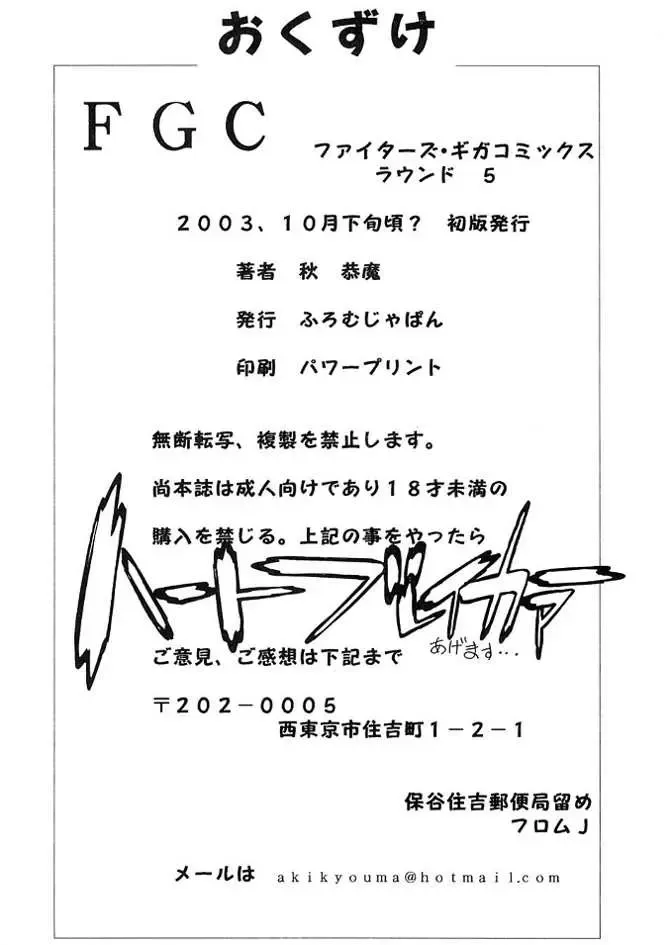 おくずけ
ＦＧＣ
ファイターズ・ギガコミックス
ラウンド　５
２００３、１０月下旬頃？　初版発行
著者　秋　恭魔
発行　ふろむじゃぱん
印刷　パワープリント
無断転写、複製を禁止します。
尚本誌は成人向けであり１８才未満の
購入を禁じる。上記の事をやったら
ハートブレイカー
あげます・・・
ご意見、ご感想は下記まで
〒２０２－０００５
西東京市住吉町１－２－１
保谷住吉郵便局留め
フロムＪ
メールは　akikyouma@hotmail.com